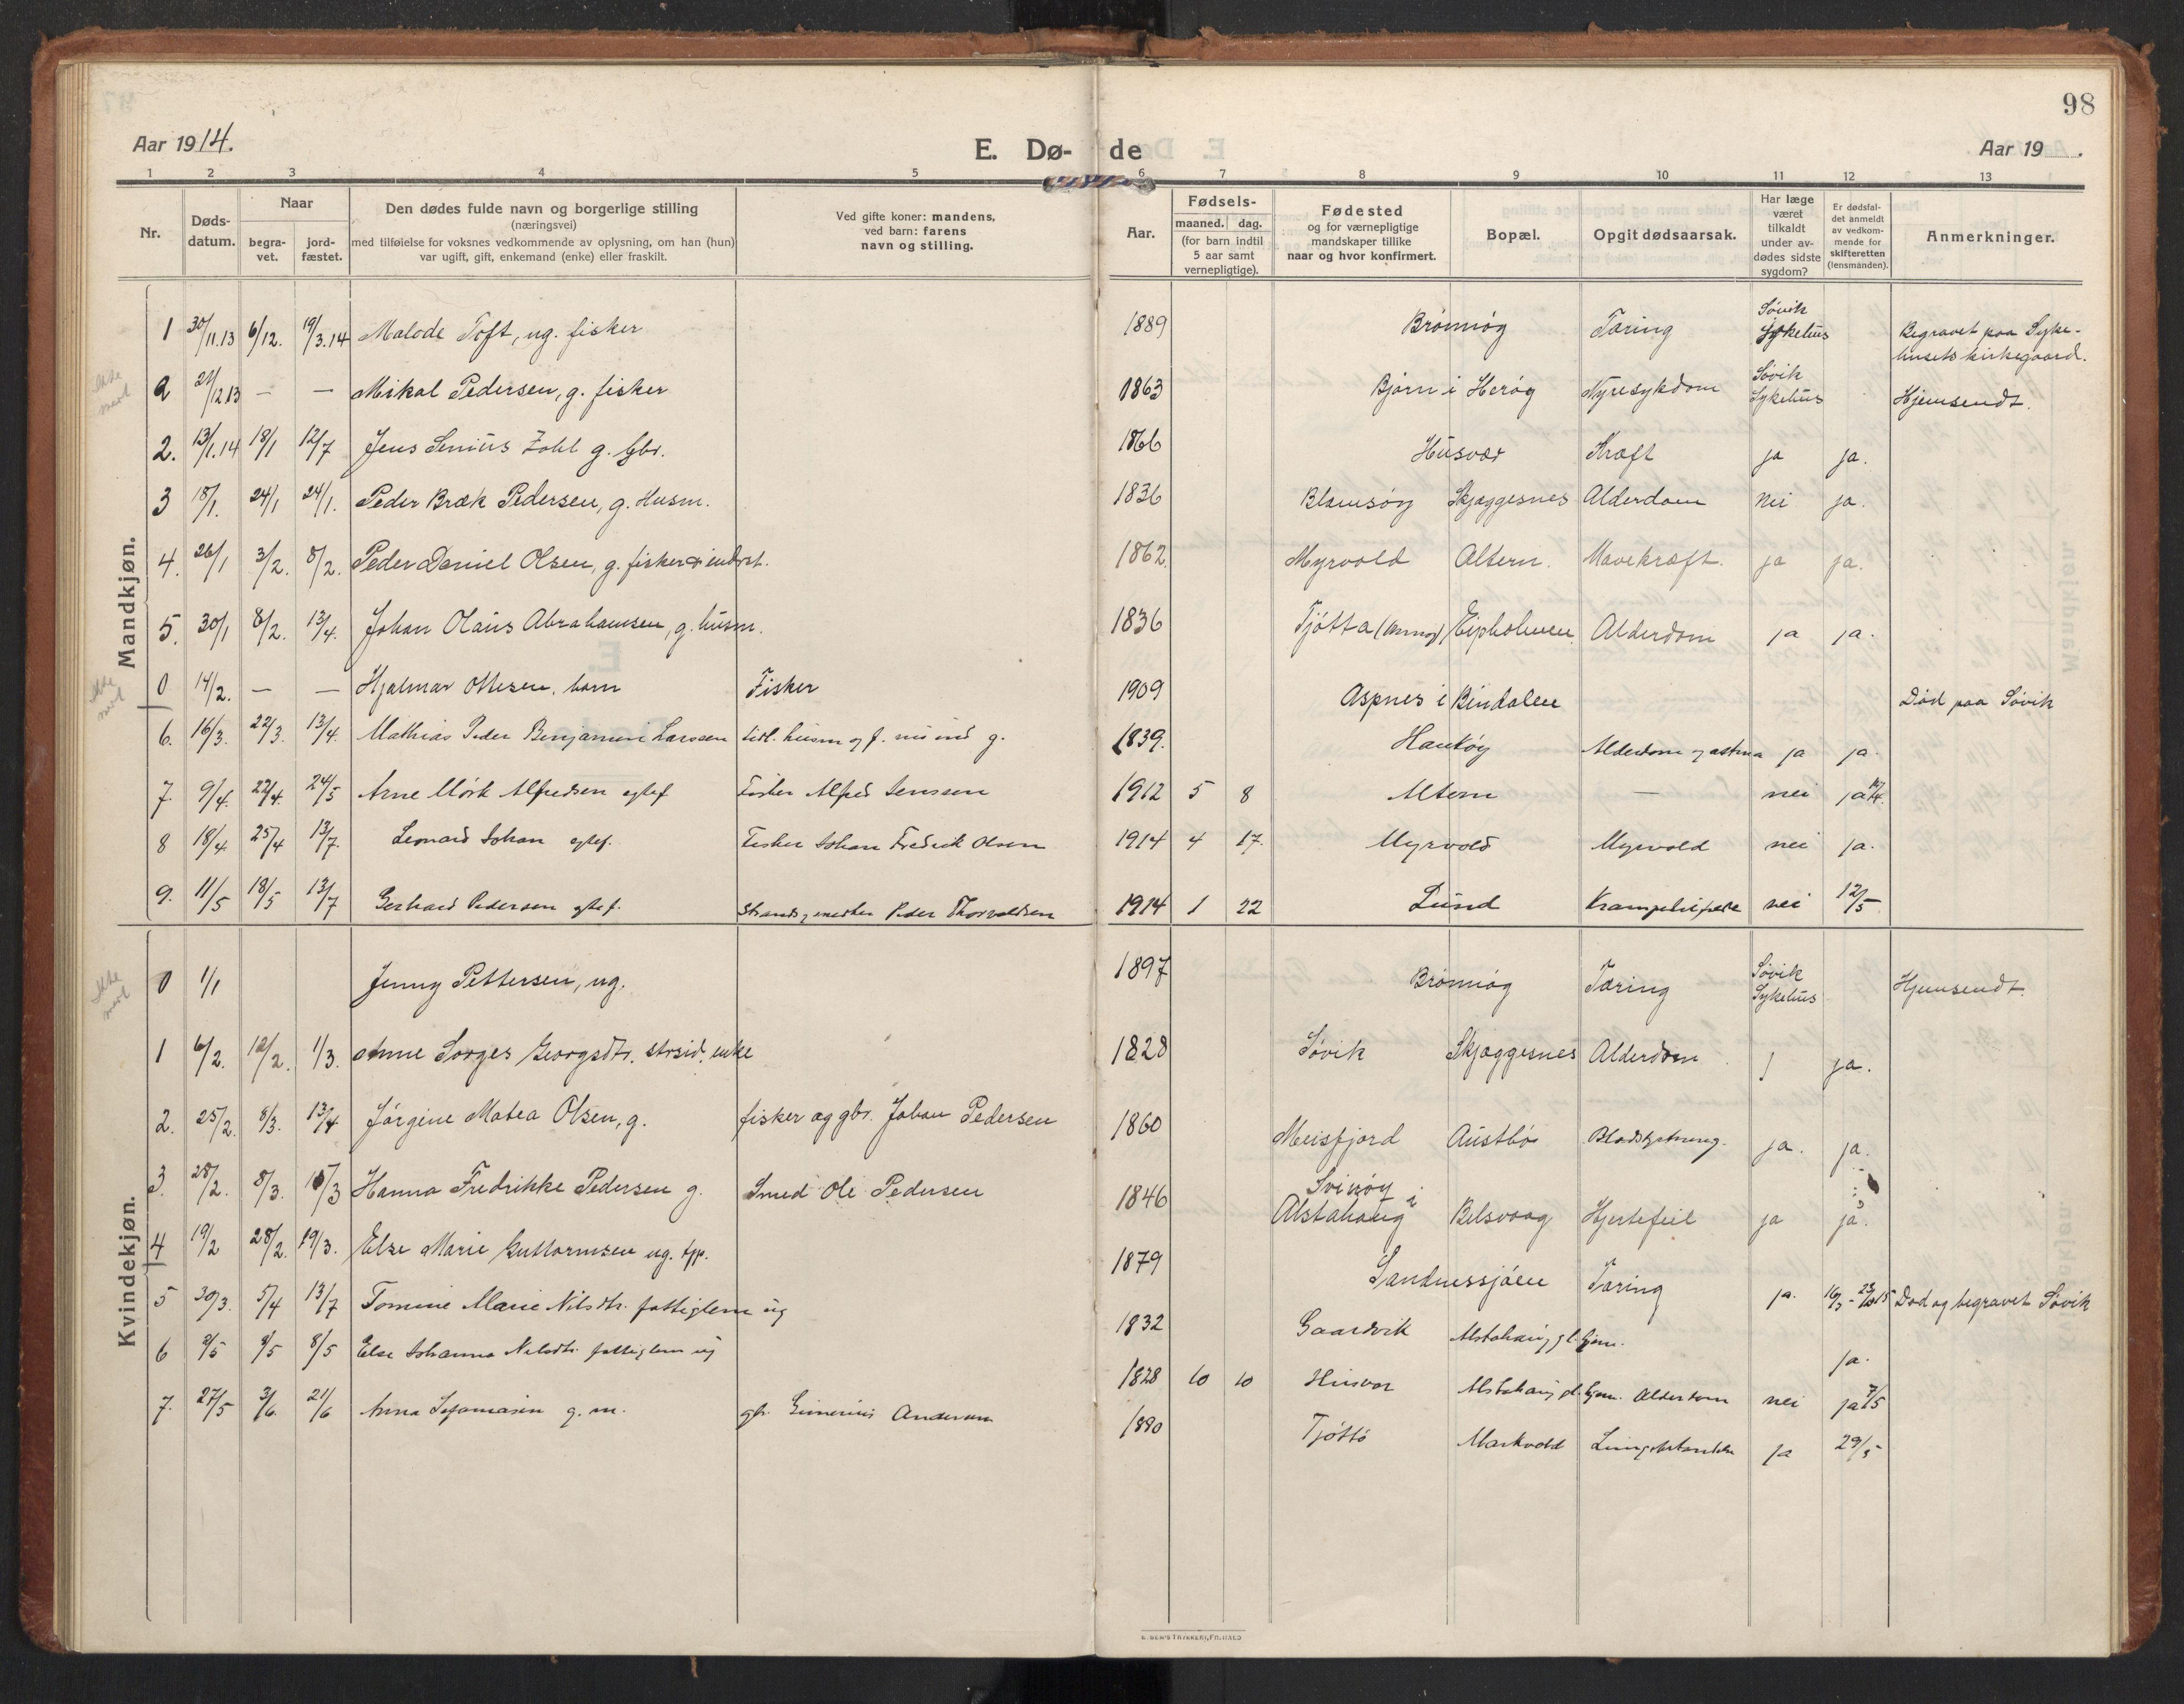 98
Aar 1914.
E. Dø-de
Aar 19   .
1 2 3 4 5 6 7 8 9 10 11 12 13
Nr.
Døds-datum.
Naar
begra-vet.
jord-fæstet.
Den dødes fulde navn og borgerlige stilling
(næringsvei)
med tilføielse for voksnes vedkommende av oplysning, om han (hun)
var ugift, gift, enkemand (enke) eller fraskilt.
Ved gifte koner: mandens,
ved barn: farens
navn og stilling.
Aar.
Fødsels-
maaned. dag.
(for barn indtil
5 aar samt
vernepligtige).
Fødested
og for værnepligtige
mandskaper tillike
naar og hvor konfirmert.
Bopæl.
Opgit dødsaarsak.
Har læge
været
tilkaldt
under av-
dødes sidste
sygdom?
Er dødsfal-
det anmeldt
av vedkom-
mende for
skifteretten
(lensmanden).
Anmerkninger.
Mandkjøn.
1 30/11.13 6/12. 19/3.14 Malode Toft, ug. fisker 1889 Brønnøy Tæring Søvik Sykehus Begravet paa Syke-
husets kirkegaard.
ikke med
21/12 13 — — Mikal Pedersen, g. fisker 1863 Bjørn i Herøy Nyresykdom Søvik Sykehus Hjemsendt.
2. 13/1.14 18/1 12/7 Jens Senius Zahl g. gbr. 1866 Husvær Kræft ja ja.
3 18/1. 24/1 24/1. Peder Bræk Pedersen, g. Husm. 1836 Blamsøy Skjæggesnes Alderdom Nei ja.
4. 26/1 3/2. 8/2. Peder Daniel Olsen, g. fisker & inderst. 1862. Myrvold Altern. Mavekræft. ja ja.
5. 30/1 8/2. 13/4. Johan Olaus Abrahamsen, g. husm. 1836 Tjøtta Alderdom ja ja.
ikke med
0 14/2. — — Hjalmar Ottesen, barn Fisker 1909 Aspnes i Bindalen Død paa Søvik
6. 16/3. 22/3. 13/4. Mathias Peder Benjamin Larssen tidl. husm og f. nu ind g. 1839. Haukøy Alderdom og astma ja ja.
7. 9/4. 22/4. 24/5 Arne Mørk Alfredsen egtef Fisker Alfred Jenssen 1912 5 8 Altern — nei ja
8 18/4 25/4 13/7. Leonard Johan egtef. Fisker Johan Fredrik Olsen 1914 4 17. Myrvold Myrvold nei ja.
9. 11/5 18/5 13/7 Gerhard Pedersen egtef. Peder Thorvaldsen 1914 1 22 Lund nei 12/5
Kvindekjøn.
ikke med
0 1/1 Jenny Pettersen, ug. 1897 Brønnøy Tæring Søvik Sykehus Hjemsendt.
1 6/2. 12/2. 1/3. Anne Sorges Georgsdtr. strsid. enke 1828 Søvik Skjæggesnes Alderdom ja.
2. 25/2. 8/3. 13/4 Jørgine Matea Olsen, g. fisker og gbr. Johan Pedersen 1860 Meisfjord Austbø ja. ja.
3. 28/2. 8/3. Hanna Fredrikke Pedersen g. Smed Ole Pedersen 1846 Svinøy i Alstahaug Belsvaag Hjertefeil ja ja.
4 19/2 28/2. 19/3. Else Marie Guttormsen ug. tjp. 1879 Sandnessjøen Tæring ja. Død og begravet Søvik
5 30/3. 5/4 13/7 Tomine Marie Nilsdtr. fattiglem ug 1832 Gaardvik Alstahaug gl. hjem. ja.
6 2/5 8/5 8/5 Else Johanna Nilsdtr. fattiglem ug 1828 10 10 Husvær Alstahaug gl. hjem. Alderdom nei ja 7/5
7. 27/5 3/6. 21/6 Anna g. m. gbr. Andersen 1880 Tjøttø Markvold ja 29/5